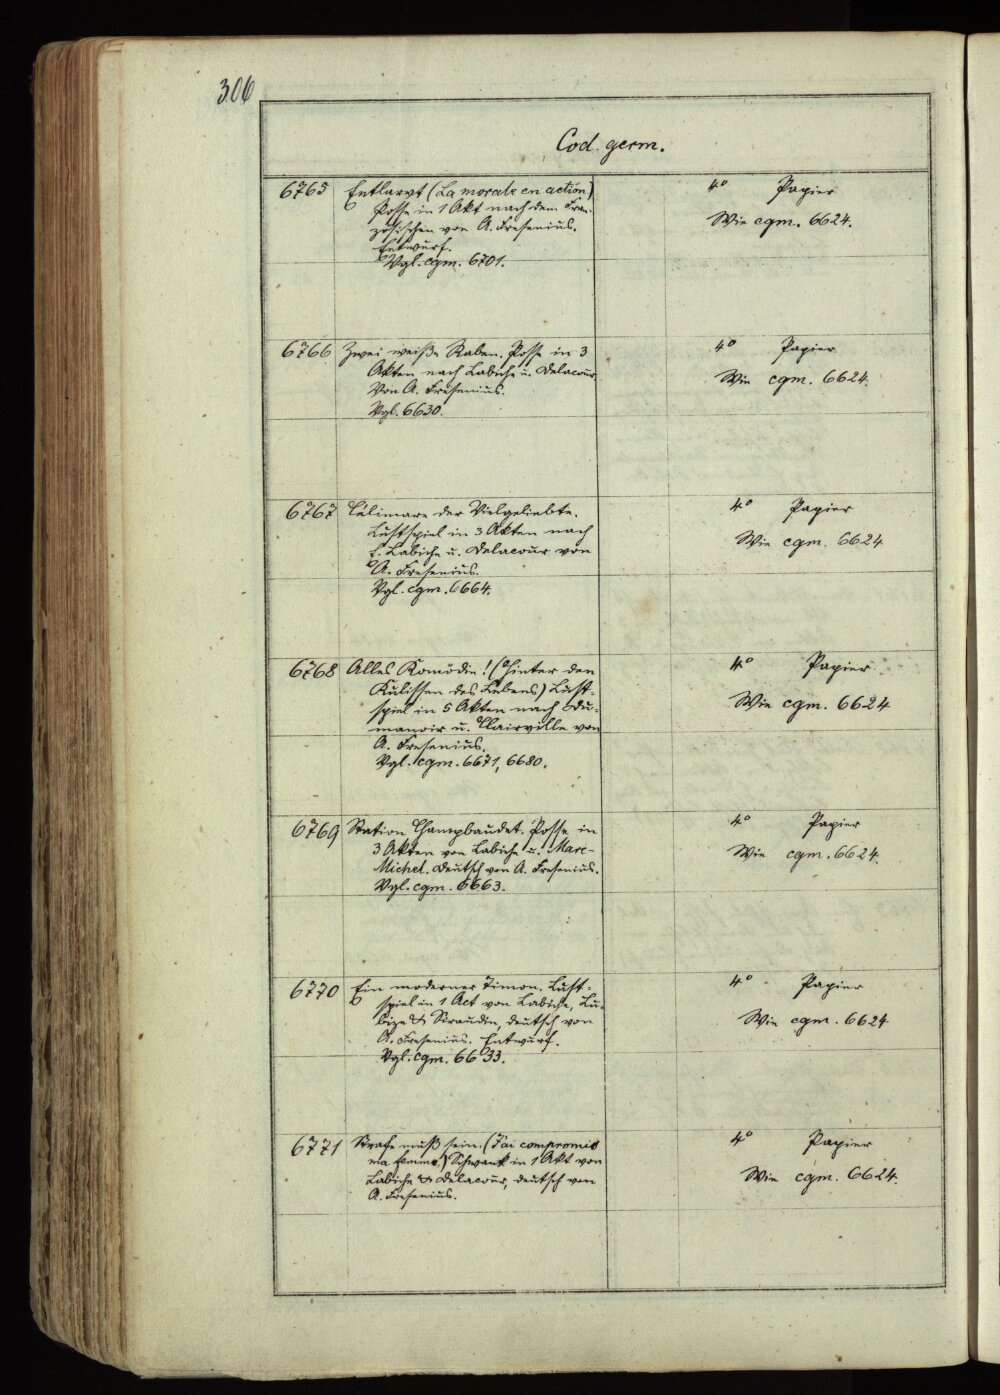 306
Cod. germ.
6765 Entlarvt (La morale en action) 4° Papier
Posse in 1 Akt nach dem Fran-
zösischen von A. Fresenius. Wie cgm. 6624.
Entwurf.
Vgl. cgm. 6701.
6766 Zwei weiße Raben. Posse in 3 4° Papier
Akten nach Labiche u. Delacour. Wie cgm. 6624.
Von A. Fresenius.
Vgl. 6630.
6767 Célimare der Vielgeliebte. 4° Papier
Lustspiel in 3 Akten nach
E. Labiche u. Delacour von Wie cgm. 6624
A. Fresenius.
Vgl. cgm. 6664.
6768 Alles Komödie! (Hinter den 4° Papier
Kulissen des Lebens) Lust-
spiel in 5 Akten nach Du- Wie cgm. 6624
manoir u. Clairville von
A. Fresenius.
Vgl. cgm. 6671, 6680.
6769 Station Champbaudet. Posse in 4° Papier
3 Akten von Labiche u. Marc-
Michel. Deutsch von A. Fresenius. Wie cgm. 6624.
Vgl. cgm. 6663.
6770 Ein moderner Timon. Lust- 4° Papier
spiel in 1 Act von Labiche, Lu-
bize & Siraudin, deutsch von Wie cgm. 6624
A. Fresenius. Entwurf.
Vgl. cgm. 6633.
6771 Strafe muß sein. (J'ai compromis 4° Papier
ma femme.) Schwank in 1 Akt von
Labiche & Delacour, deutsch von Wie cgm. 6624.
A. Fresenius.